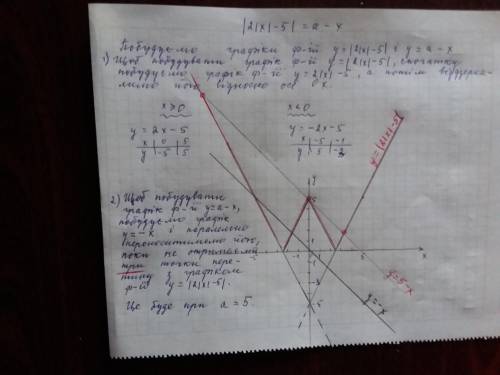 |2|x|-5| = a - x
Побудуємо графіки ф-ій y=|2|x|-5| і y = a - x
1) Щоб побудувати графік ф-ій y=|2|x|-5|, спочатку
побудуємо графік ф-ій y=2|x|-5, а потім віддзерка-
лимо його відносно осі 0x.
x ≥ 0
y = 2x - 5
x | 0 | 5
y | -5 | 5
x < 0
y = -2x - 5
x | -5 | -1
y | 5 | -3
2) Щоб побудувати
графік ф-ій y=a-x,
побудуємо графік
y=-x і паралельно
переноситимемо його,
поки не отримаємо
три точки пере-
тину з графіком
ф-ій y=|2|x|-5|.
Це буде при a = 5.
y=|2|x|-5|
y=5-x
y=-x
y
x
5
1
-5
-1
1
5
-1
-3
-5